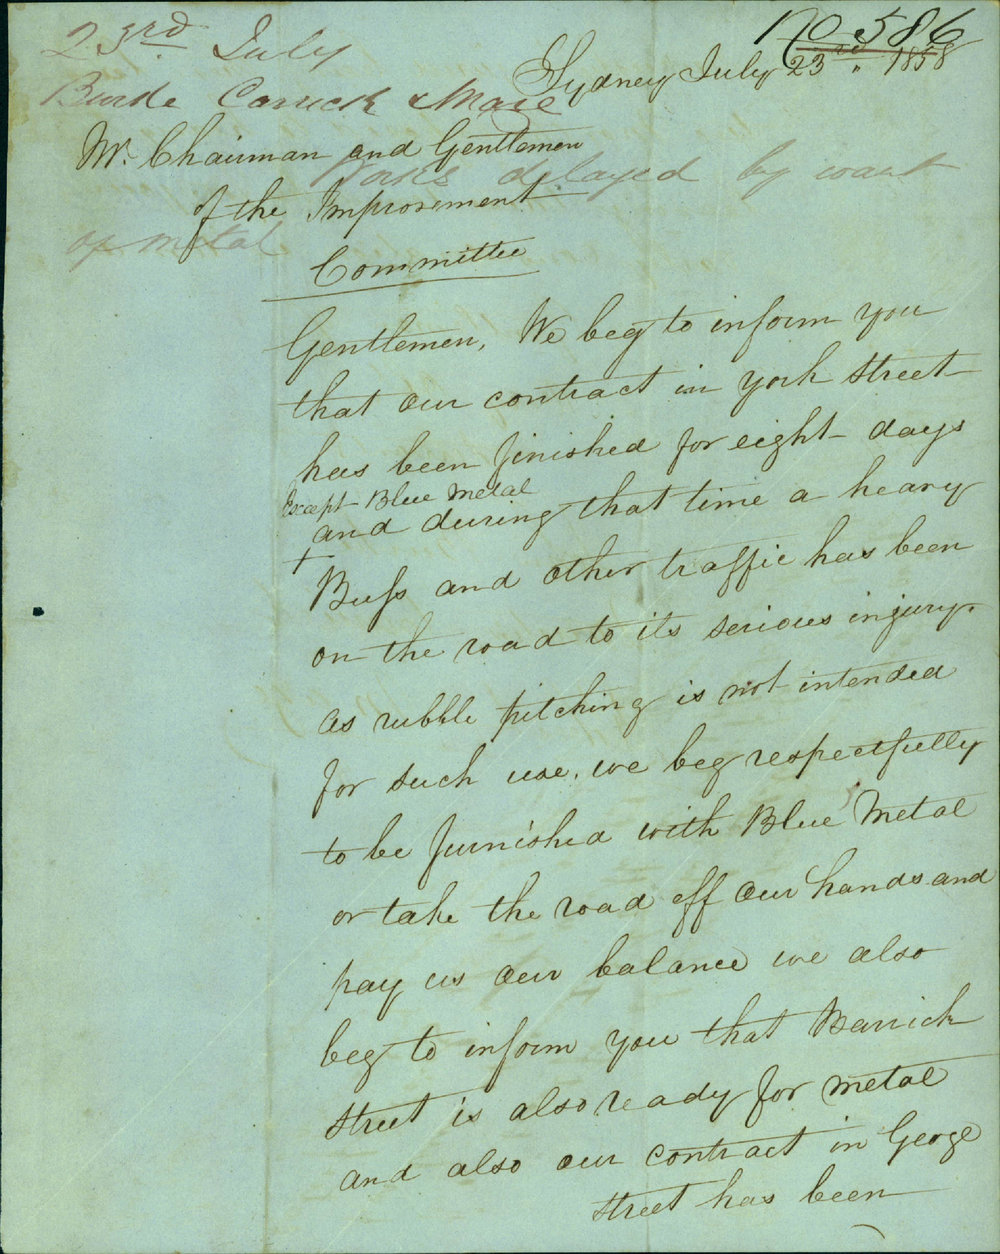 No 586
23rd July
Sydney July 23rd, 1858
Burke Carrick & Mace
Mr. Chairman and Gentlemen
Works delayed by want
of the Improvement
of metal
Committee
Gentlemen, We beg to inform you
that our contract in York Street
has been finished for eight days
Except Blue Metal
and during that time a heavy
Buss and other traffic has been
on the road to its serious injury.
as rubble pitching is not intended
for such use, we beg respectfully
to be furnished with Blue Metal
or take the road off our hands and
pay us our balance we also
beg to inform you that Barrick
Street is also ready for metal
and also our contract in George
Street has been